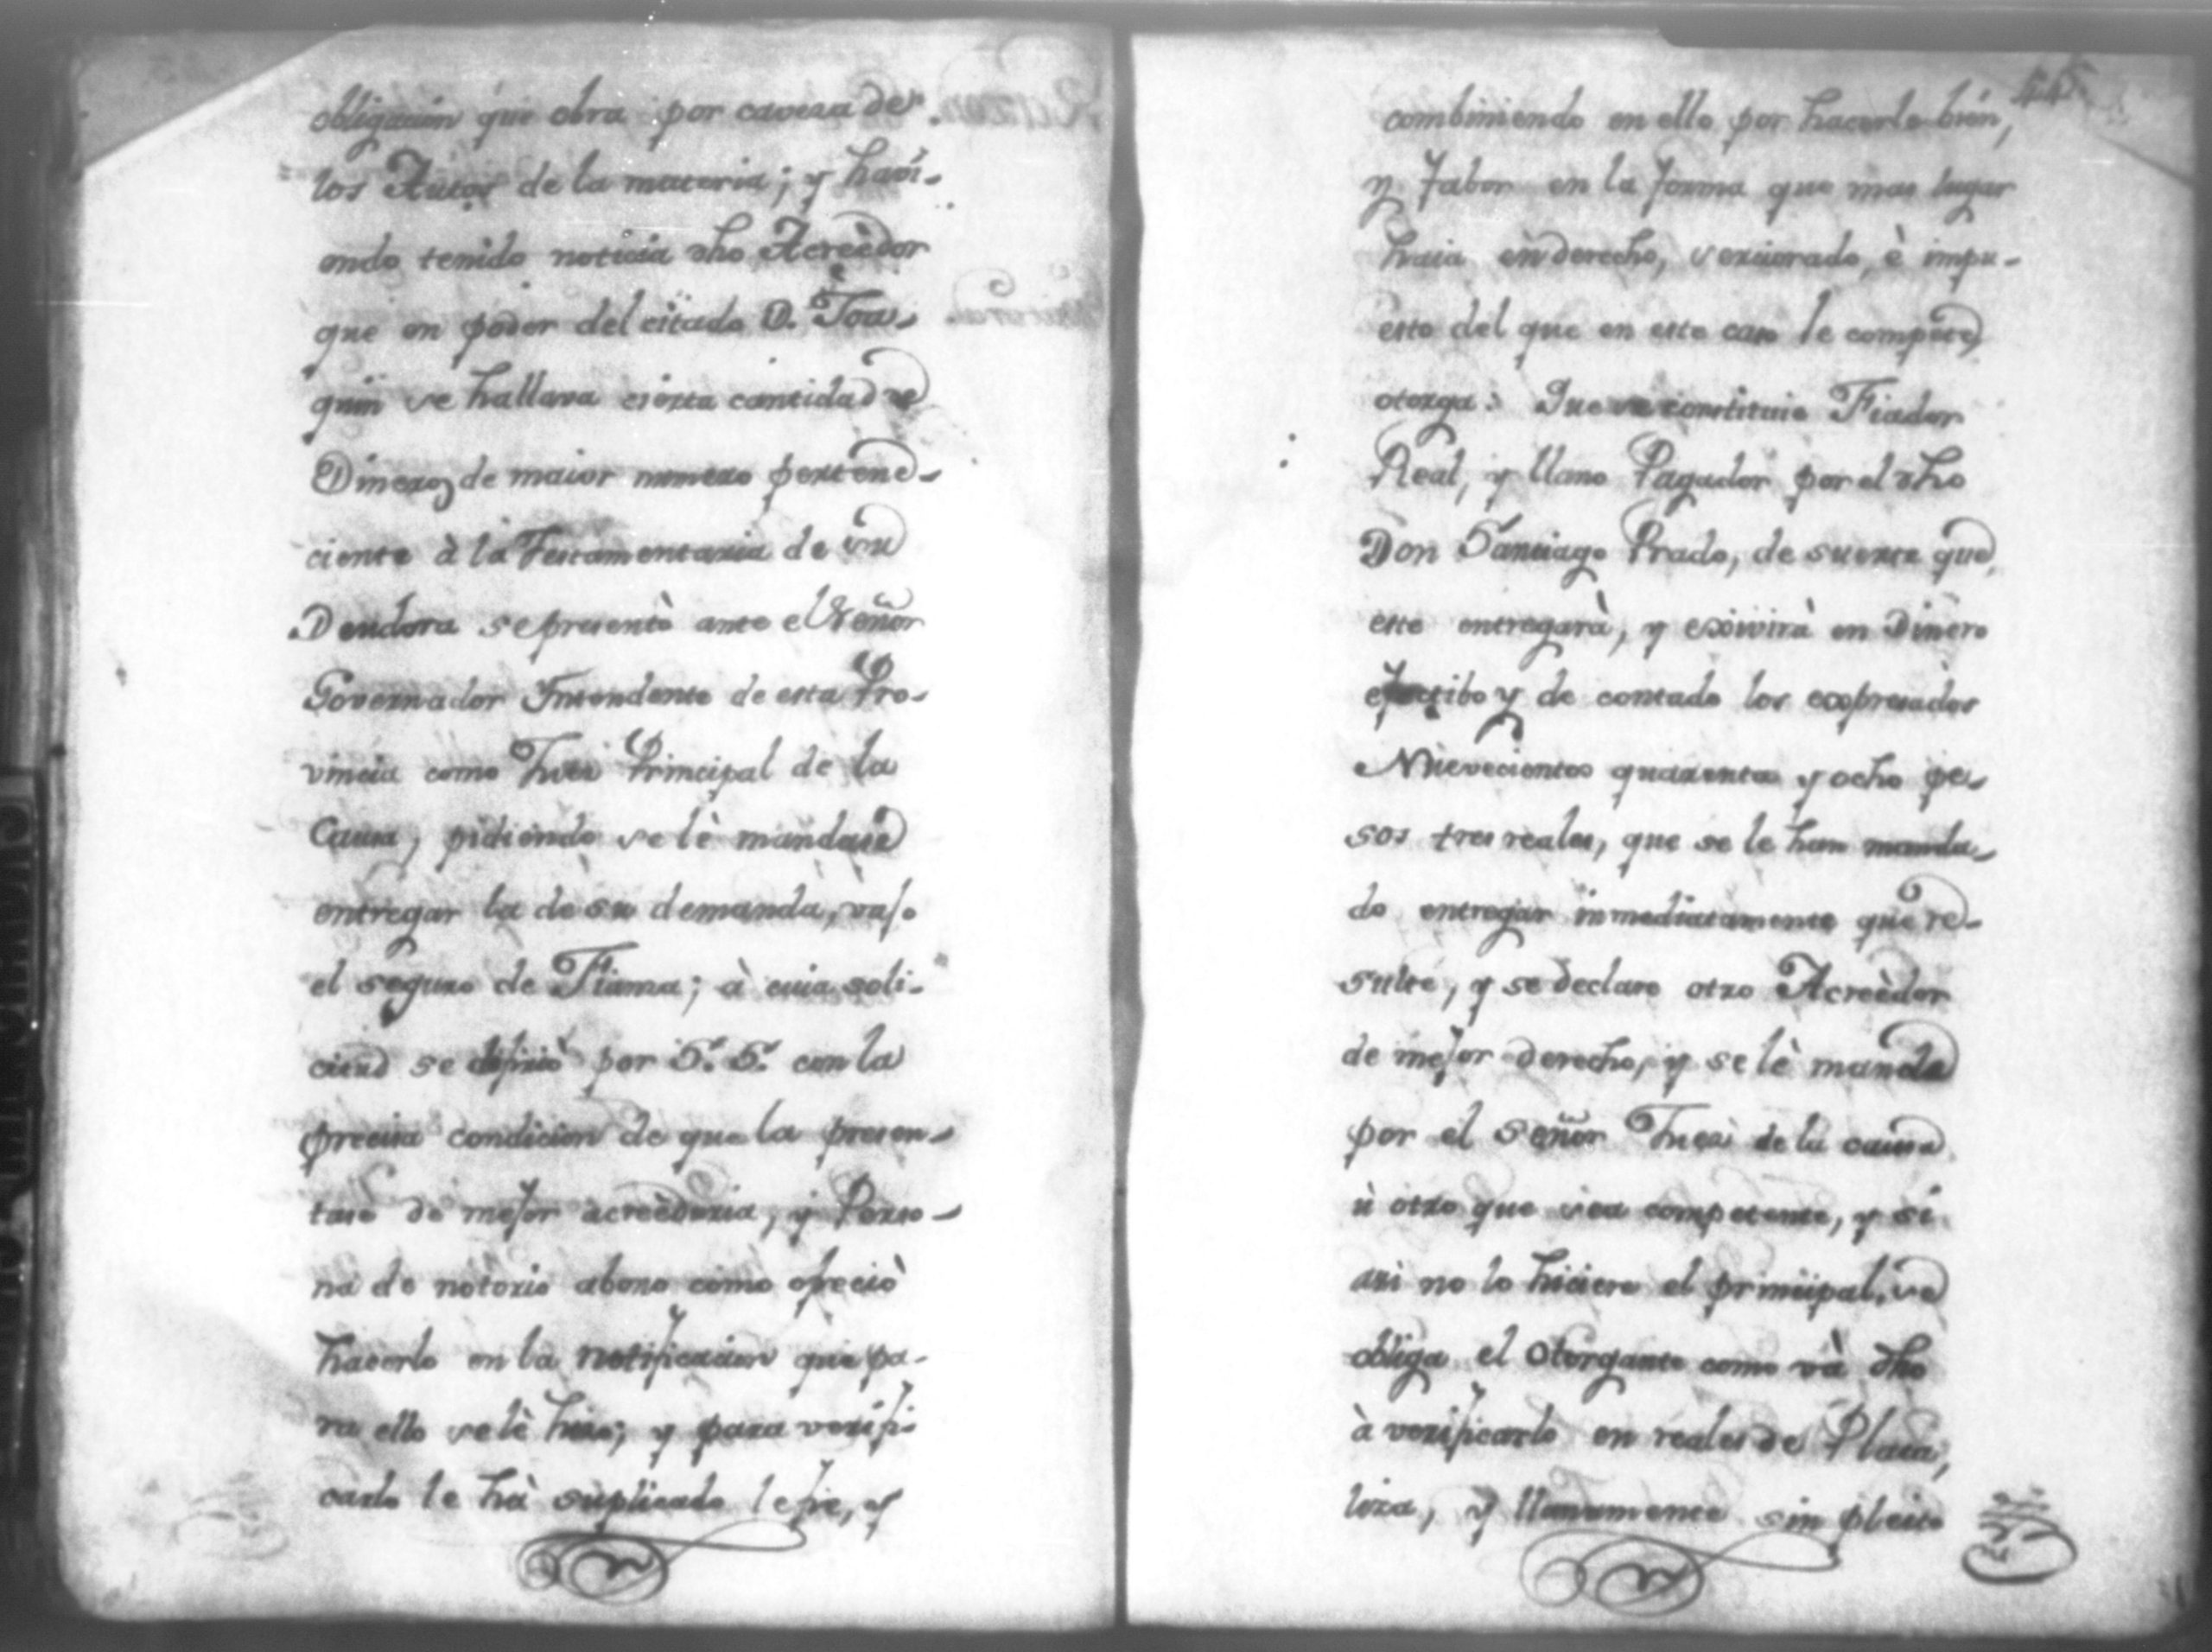 obligacion que obra por caveza de
los Autos de la materia; y havi-
endo tenido noticia dho Acreèdor
que en poder del citado D. Joa-
quin se hallava cierta cantidad de
Dinero, de maior numero pertene-
ciente à la Testamentaria de su
Deudora se presentò ante el Señor
Governador Intendente de esta Pro-
vincia como Juez Principal de la
Causa, pidiendo se lè mandase
entregar la de su demanda, vajo
el seguro de Fianza; à cuia soli-
citud se difiriò por S. S. con la
precisa condicion de que la presen-
tase de mejor acreèdoria, y Perso-
na de notorio abono como ofreciò
hacerlo en la notificacion que pa-
ra ello se lè hizo; y para verifi-
carlo le hà suplicado le fie, y
45
combiniendo en ello por hacerle bien,
y fabor en la forma que mas lugar
haia en derecho, serciorado, è impu-
esto del que en este caso le compete,
otorga: Que se constituie Fiador
Real, y llano Pagador por el dho
Don Santiago Prado, de suerte que
este entregarà, y exivirà en Dinero
efectibo y de contado los expresados
Nuevecientos quarenta y ocho pe-
sos tres reales, que se le han manda-
do entregar inmediatamente que re-
sulte, y se declare otro Acreèdor
de mejor derecho, y se lè mande
por el Señor Juez de la causa
ù otro que sea competente, y si
asi no lo hiciere el principal, se
obliga el Otorgante como và dho
à verificarlo en reales de Plata,
liza, y llanamente sin pleito